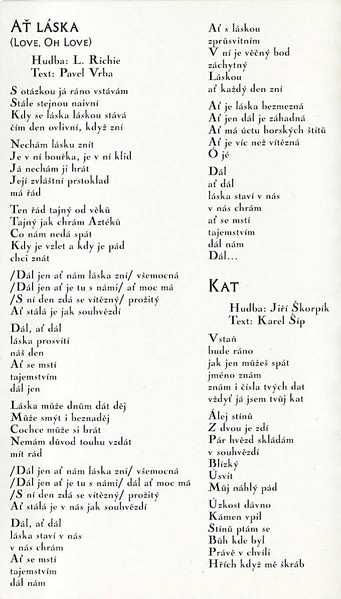 AŤ LÁSKA
(LOVE, OH LOVE)
Hudba: L. Richie
Text: Pavel Vrba
S otázkou já ráno vstávám
Stále stejnou naivní
Kdy se láska láskou stává
čím den ovlivní, když zní
Nechám lásku znít
Je v ní bouřka, je v ní klid
Já nechám ji hrát
Její zvláštní prstoklad
má řád
Ten řád tajný od věků
Tajný jak chrám Aztéků
Co nám nedá spát
Kdy je vzlet a kdy je pád
chci znát
/Dál jen ať nám láska zní/ všemocná
/Dál jen ať je tu s námi/ ať moc má
/S ní den zdá se vítězný/ prožitý
Ať stálá je jak souhvězdí
Dál, ať dál
láska prosvítí
náš den
Ať se mstí
tajemstvím
dál jen
Láska může dnům dát děj
Může smýt i beznaděj
Cochce může si brát
Nemám důvod touhu vzdát
mít rád
/Dál jen ať nám láska zní/ všemocná
/Dál jen ať je tu s námi/ dál ať moc má
/S ní den zdá se vítězný/ prožitý
Ať stálá je v nás jak souhvězdí
Dál, ať dál
láska staví v nás
v nás chrám
Ať se mstí
tajemstvím
dál nám
Ať s láskou
zprůsvitním
V ní je věčný bod
záchytný
Láskou
ať každý den zní
Ať je láska bezmezná
Ať jen dál je záhadná
Ať má úctu horských štítů
Ať je víc než vítězná
Ó jé
Dál
ať dál
láska staví v nás
v nás chrám
ať se mstí
tajemstvím
dál nám
Dál...
KAT
Hudba: Jiří Škorpík
Text: Karel Šíp
Vstaň
bude ráno
jak jen můžeš spát
jméno znám
znám i čísla tvých dat
vždyť já jsem tvůj kat
Álej stínů
Z dvou je zdí
Pár hvězd skládám
v souhvězdí
Blízký
Úsvit
Můj náhlý pád
Úzkost dávno
Kámen vpil
Stínů ptám se
Bůh kde byl
Právě v chvíli
Hřích když mě škráb